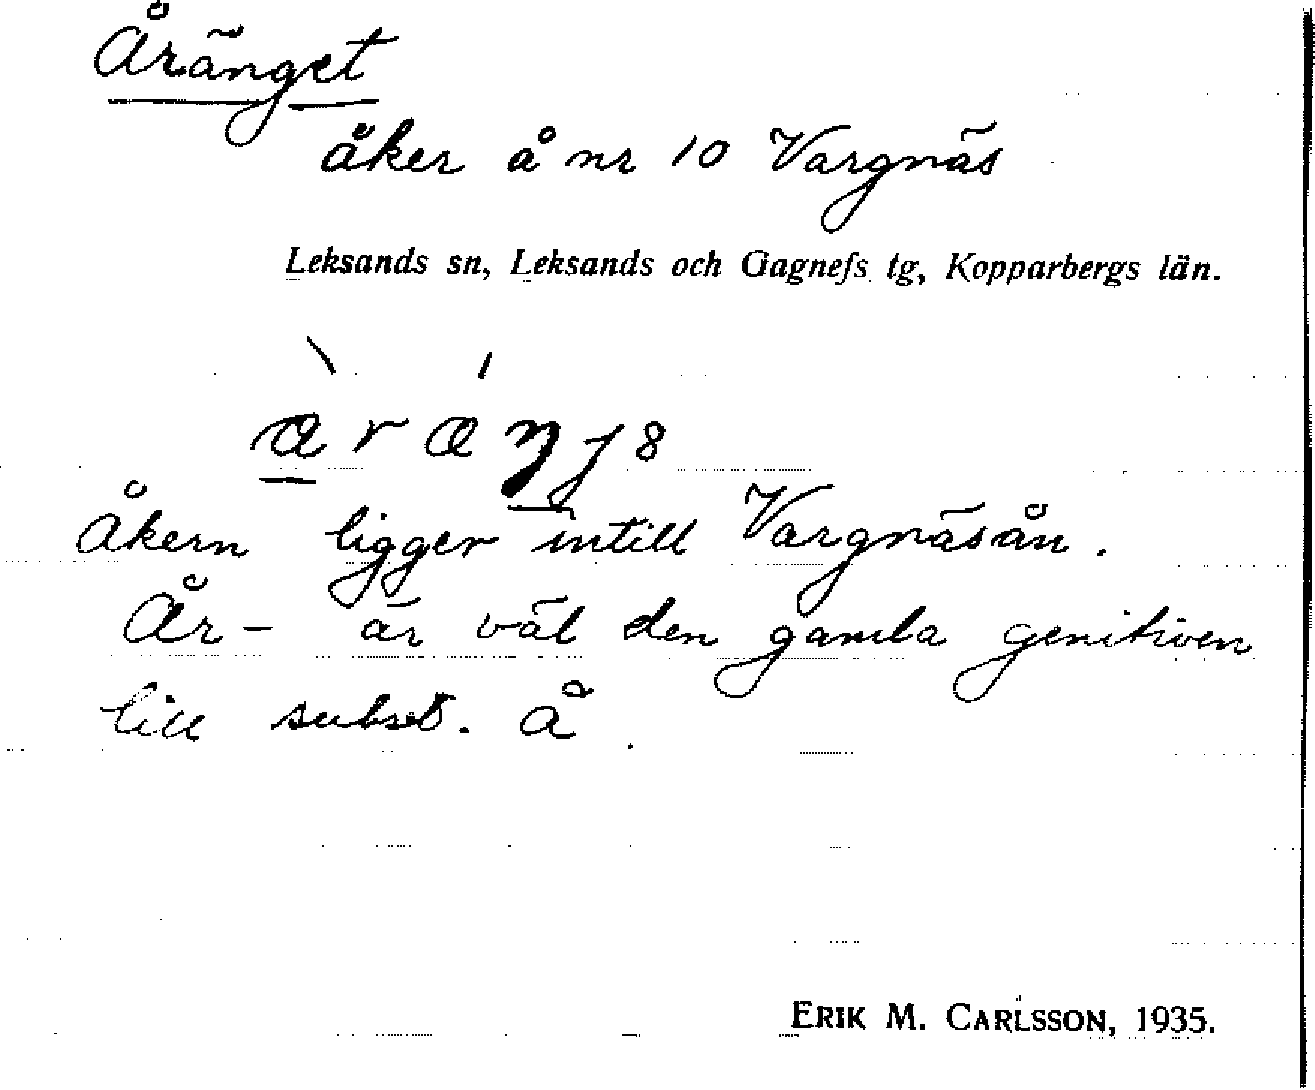 Åränget
åker å nr 10 Vargnäs
Leksands sn, Leksands och Gagnefs tg, Kopparbergs län.
Åkern ligger intill Vargnäsån.
År- är väl den gamla genitiven
till subst. å.
ERIK M. CARLSSON, 1935.